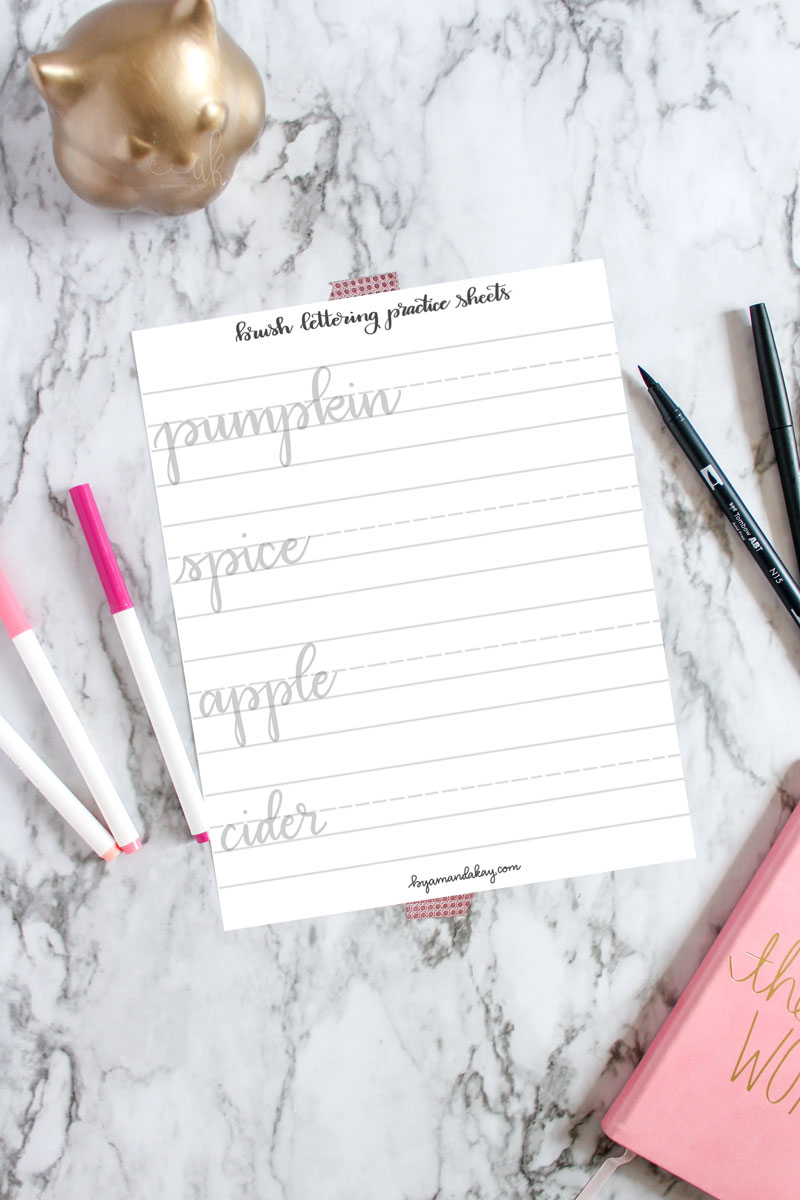 brush lettering practice sheets
pumpkin
spice
apple
cider
byamandakay.com
Tombow ABT
N15
the
WO